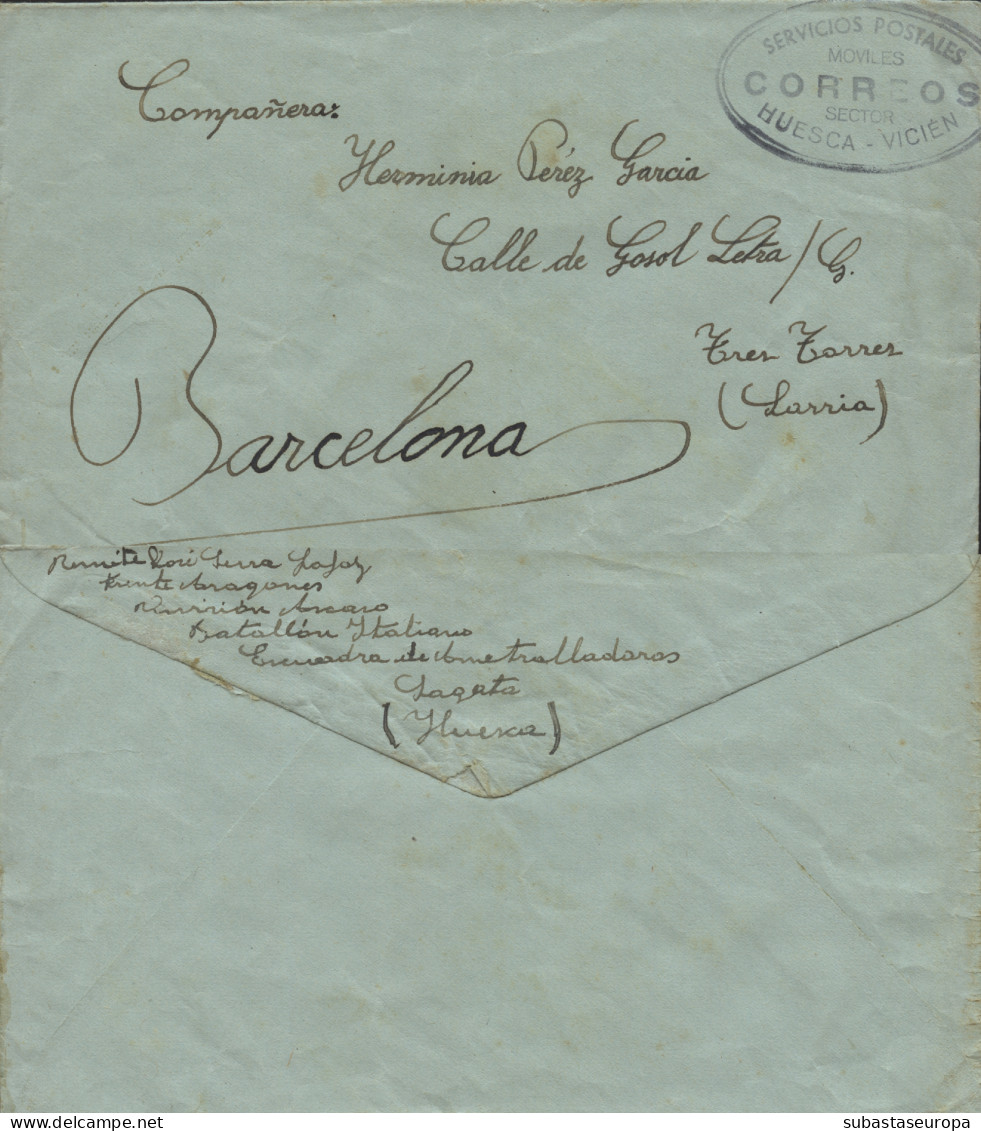 SERVICIOS POSTALES
MOVILES
CORREOS
SECTOR
HUESCA - VICIÉN
Compañera:
Herminia Peréz Garcia
Calle de Gosol Letra / G.
Tres Torres
(Sarria)
Barcelona
Remite José Serra
Frente Aragones
Divición Ascaso
Batallón Italiano
Escuadra de Ametralladoras
Sagata
(Huesca)
subastaseuropa